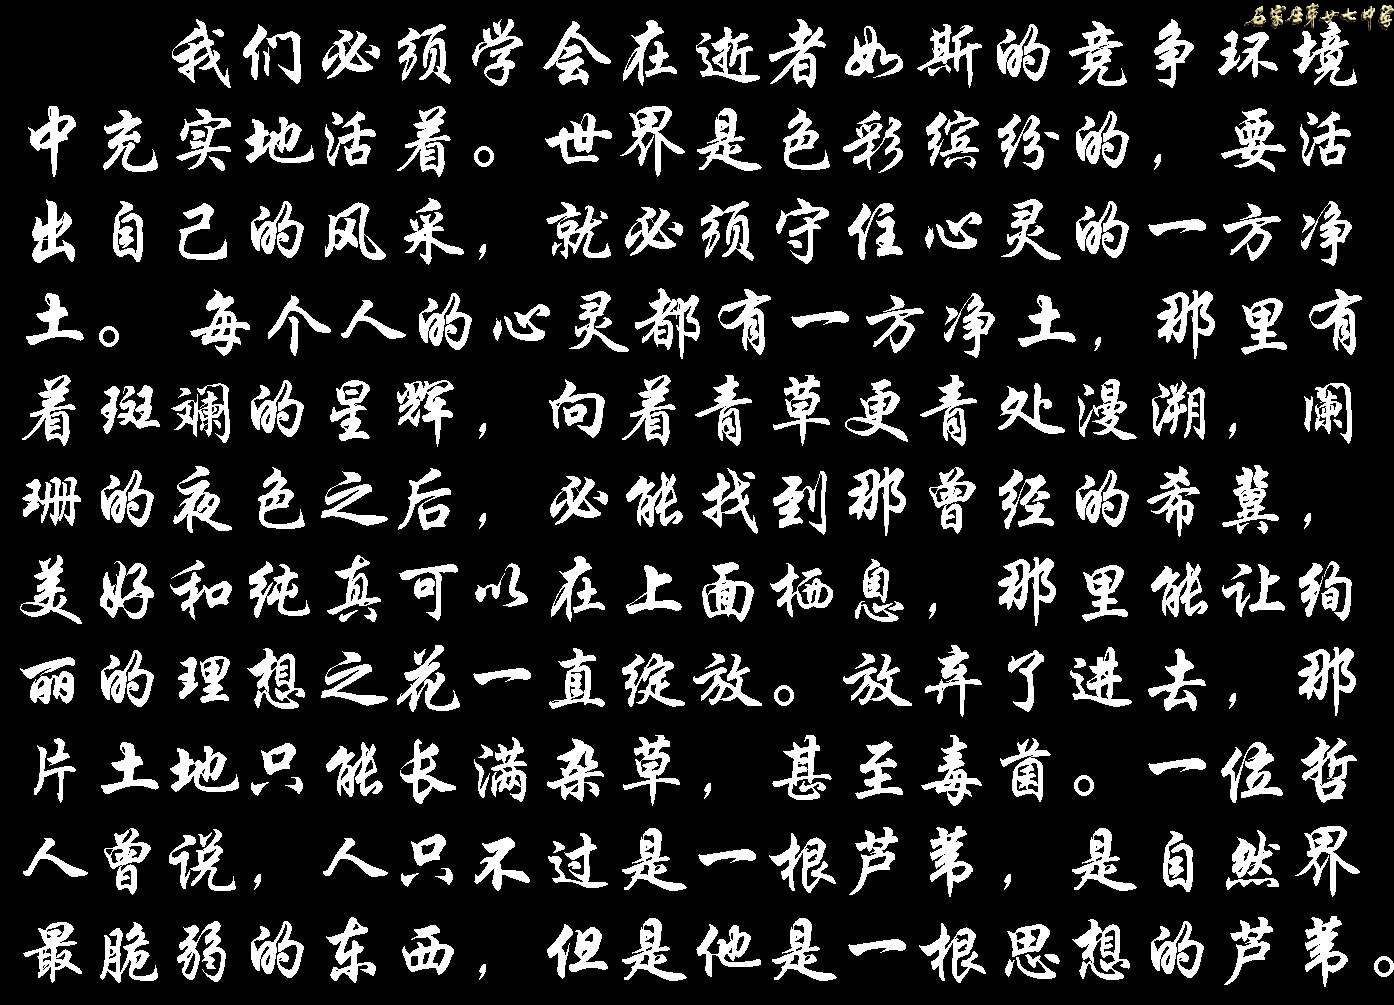 石家庄第廿七中学
我们必须学会在逝者如斯的竞争环境
中充实地活着。世界是色彩缤纷的，要活
出自己的风采，就必须守住心灵的一方净
土。每个人的心灵都有一方净土，那里有
着斑斓的星辉，向着青草更青处漫溯，阑
珊的夜色之后，必能找到那曾经的希冀，
美好和纯真可以在上面栖息，那里能让绚
丽的理想之花一直绽放。放弃了进去，那
片土地只能长满杂草，甚至毒菌。一位哲
人曾说，人只不过是一根芦苇，是自然界
最脆弱的东西，但是他是一根思想的芦苇。